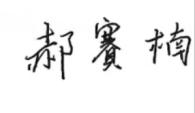 郝賽楠